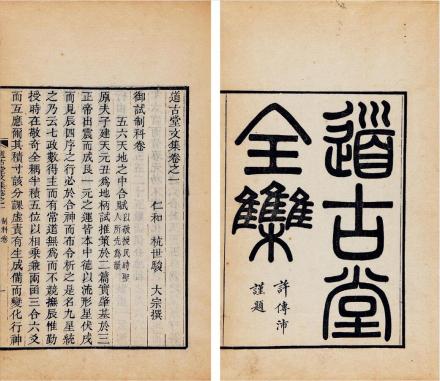 道古堂
全集
許傳沛
謹題
道古堂文集卷之一
仁和 杭世駿 大宗撰
御試制科卷
五六天地之中合賦以敬授民時聖人所先為韻
原夫子建天元丑為地柄試推策於二篇實肇基於三
正帝出震而成艮一元之運皆本中德以流形星伏戌
而見辰四序之行必於合神而布令析之是名九星統
之乃云七政數得主而有常道無為而不競撫辰惟勤
授時在敬奇全耦半積五位以相乗兼兩函三合六爻
而互應爾其積寸該分課虛責有生成備而變化行神
道古堂文集卷之一 制科卷 一